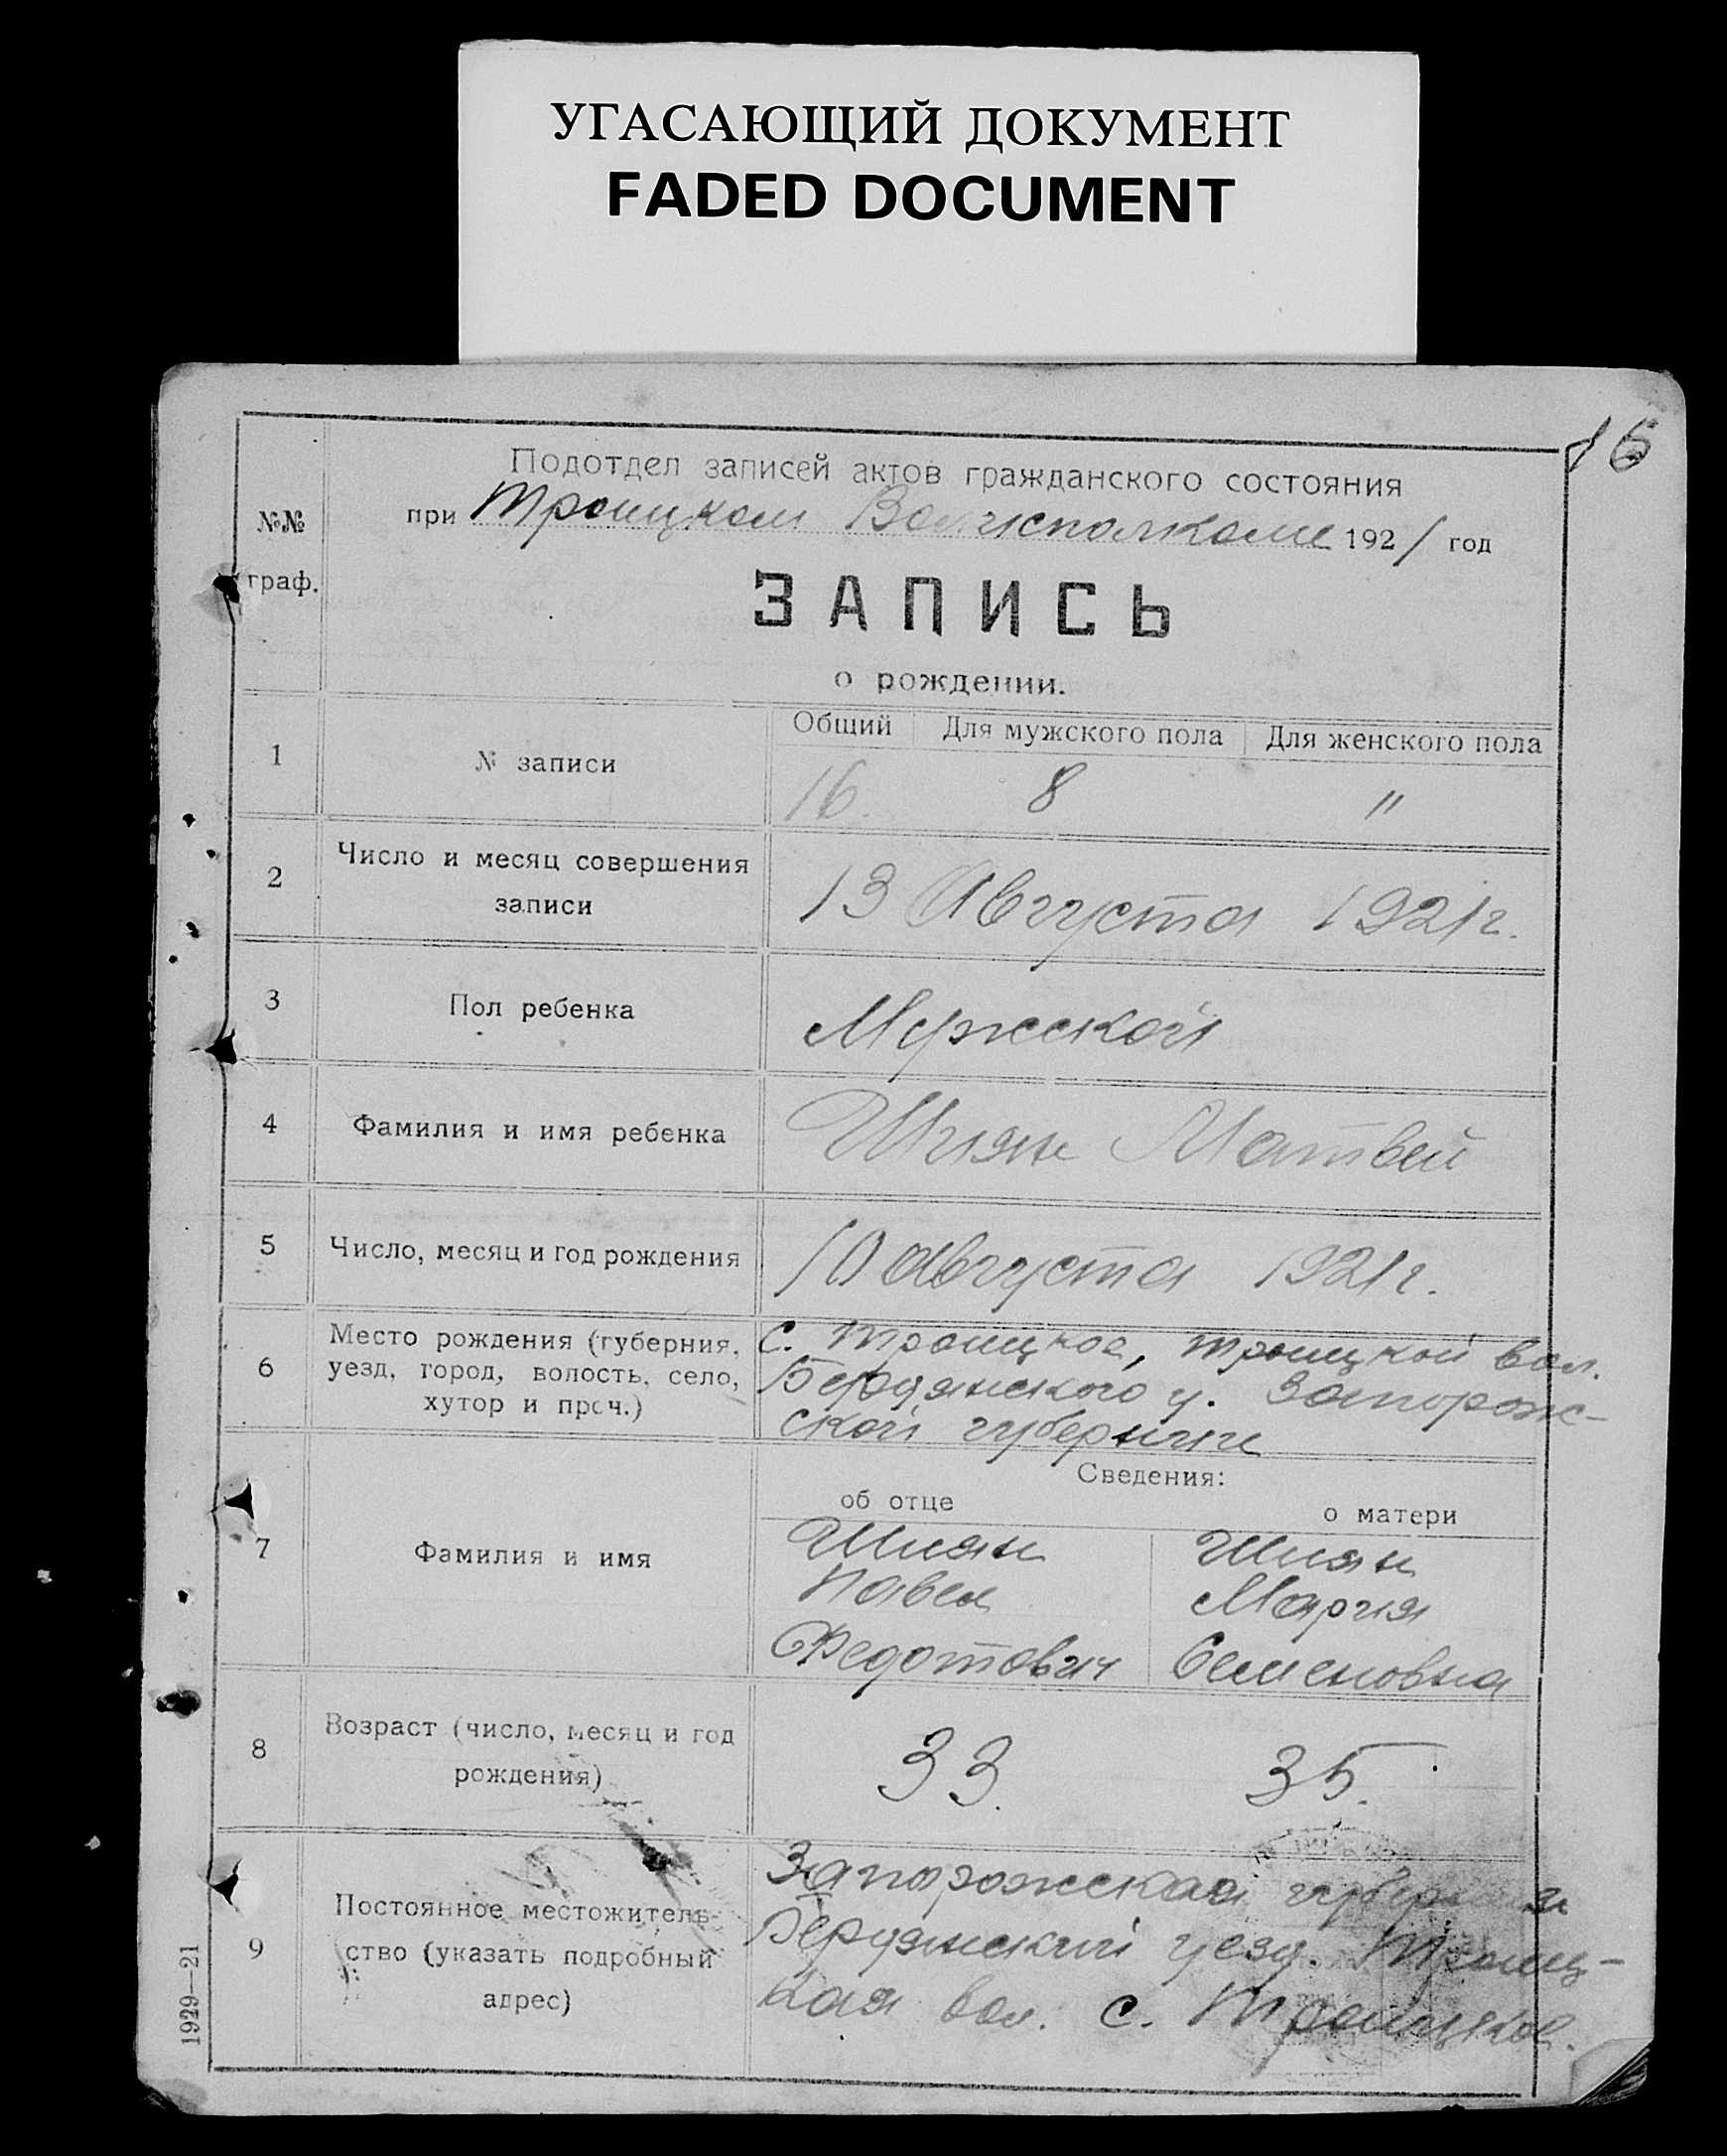 УГАСАЮЩИЙ ДОКУМЕНТ
FADED DOCUMENT
16
Подотдел записей актов гражданского состояния
№№
граф.
при Троицком Волисполкоме 1921 год
ЗАПИСЬ
о рождении.
Общий Для мужского пола Для женского пола
1 № записи 16. 8 "
2 Число и месяц совершения
записи
13 Августа 1921 г.
3 Пол ребенка Мужской
4 Фамилия и имя ребенка Шиян Матвей
5 Число, месяц и год рождения 10 августа 1921 г.
6 Место рождения (губерния,
уезд, город, волость, село,
хутор и проч.)
с. Троицкое, Троицкой вол.
Бердянского у. Запорож-
ской губернии
Сведения:
об отце о матери
7 Фамилия и имя
Шиян Шиян
Павел Мария
Федотович Семеновна
8 Возраст (число, месяц и год
рождения)
33. 35.
9 Постоянное местожитель-
ство (указать подробный
адрес)
Запорожская губерния
Бердянский уезд. Троиц-
кая вол. с. Троицкое.
1929—21